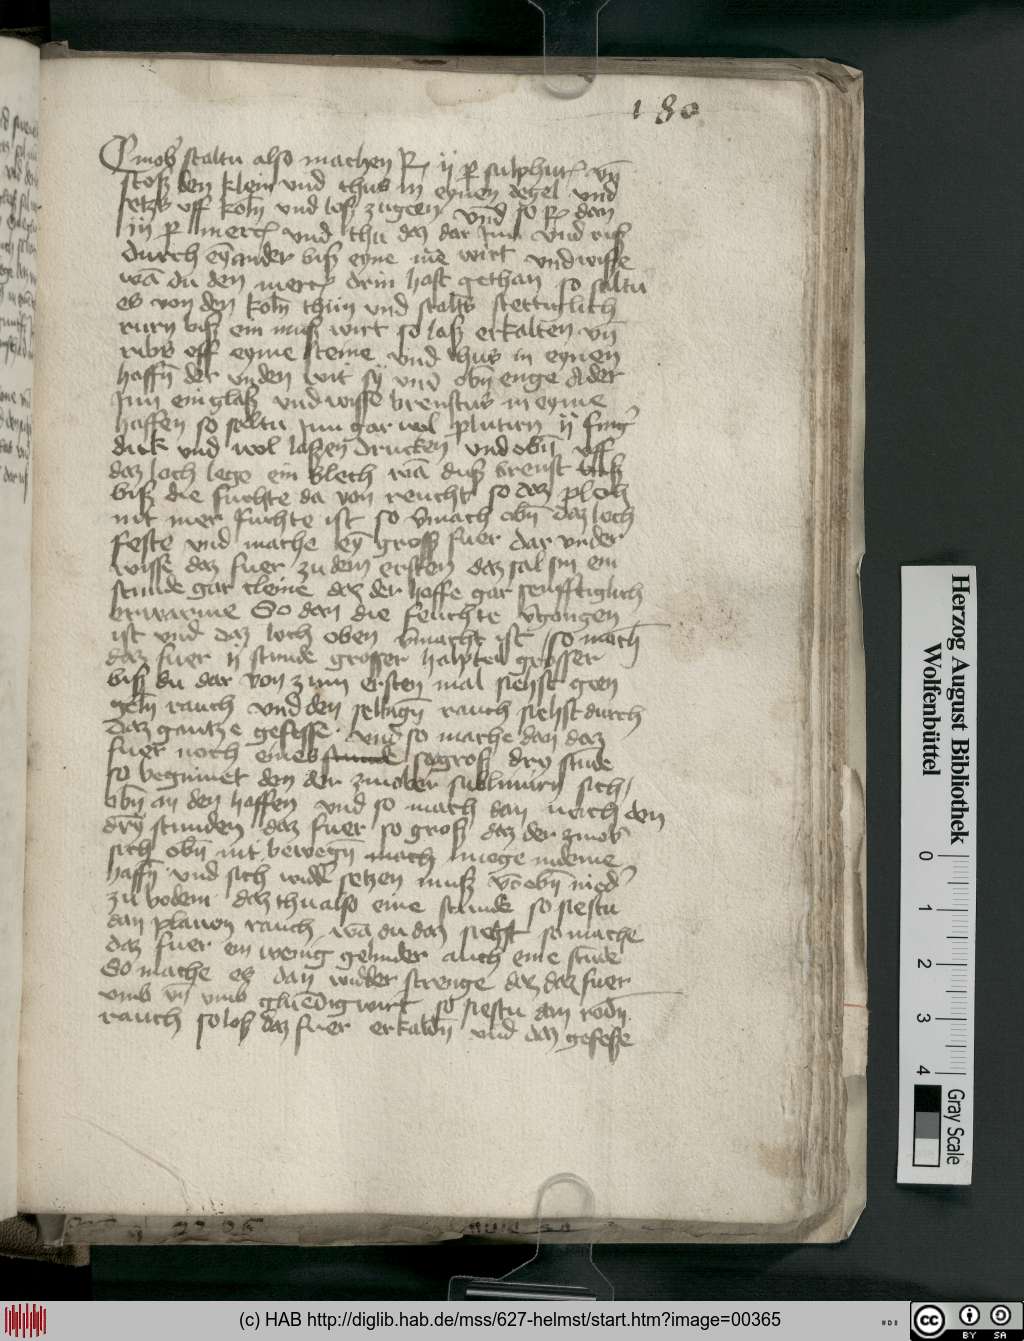 180
Cinob' saltu also machen R ij p sulphur vn̄
stoß den klein vnd thus in eynen degel vnd
setzs vff koln̄ vnd loß zugeen vnd so R dan
iij p merc vnd thu daz dar Inn vnd rur
durch eȳander biß eyne me wirt vnd wisse
wā du den merc drin hast gethan so saltu
es von den koln̄ thun vnd stettiglich
rurn biß ein muß wirt so laß erkalten vn̄
ribs vff eyme steine vnd thus in eynen
haffn̄ der vnden wit sy vnd obn̄ enge Ader
Inn ein glaß vnd wisse brenstus in eyme
haffen so saltu Inn gar wol lutirn ij fing'
dick vnd wol laßen drucken vnd obn̄ vff
daz loch lege ein blech wā duß brenst
biß die fuchte da von reucht so daz plech
nit mer fuchte ist so v̄mach obn̄ daz loch
feste vnd mache eȳ groß fuer dar vnder
wisse daz fuer zu dem ersten daz sal sin ein
stunde gar cleine daz der haffe gar senfftiglich
erwarme So dan die feuchte v̄gangen
ist vnd daz loch oben v̄macht ist so mach
daz fuer ij stunde grosser halpteil grosser
biß du dar von zum ersten mal siehst geen
geln̄ rauch vnd den selbign̄ rauch siehst durch
daz gantze gefesse vnd so mache dan daz
fuer noch eines stunde so groß dry stude
so begynnet den der zinober sublimirn sich
obn̄ an den haffen vnd so mach dan noch den
dry stunden daz fuer so groß daz der zinob'
sich obn̄ nit bewegn̄ mach moge in deme
haffn̄ vnd sich widd' setzen muß vō obn̄ nied'
zu bodem daz thu also eine stunde so siestu
dan plauen rauch wā du daz siehst so mache
daz fuer ein wenig gelinder auch eine stūde
So mache es dan widder strenge daz daz fuer
vmb vn̄ vmb gluēdig wirt so siestu dan rodn̄
rauch so loß daz fuer erkaldn̄ vnd daz gefeße
Herzog August Bibliothek
Wolfenbüttel
0 1 2 3 4
Gray Scale
(c) HAB http://diglib.hab.de/mss/627-helmst/start.htm?image=00365
cc BY SA